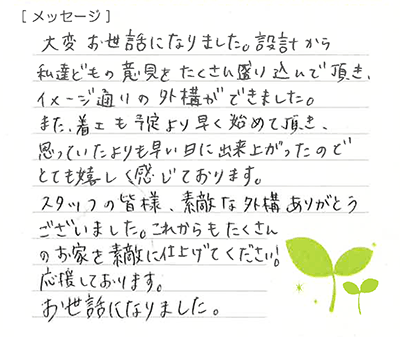 [メッセージ]
大変お世話になりました。設計から
私達どもの意見をたくさん盛り込んで頂き、
イメージ通りの外構ができました。
また、着工も予定より早く始めて頂き、
思っていたよりも早い日に出来上がったので
とても嬉しく感じております。
スタッフの皆様、素敵な外構ありがとう
ございました。これからもたくさん
のお家を素敵に仕上げてください!
応援しております。
お世話になりました。